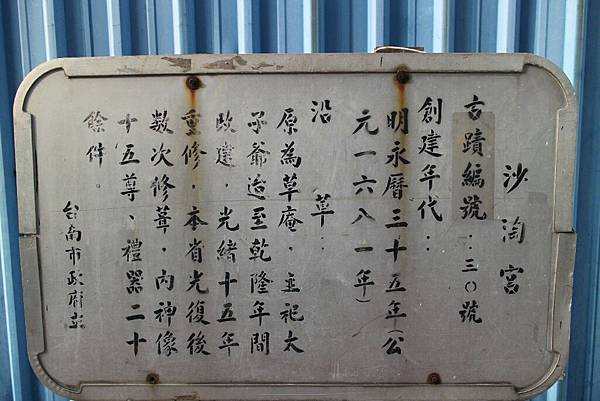 沙淘宮
古蹟編號：三〇號
創建年代：
明永曆三十五年(公
元一六八一年)
沿革：
原為草庵，主祀太
子爺迨至乾隆年間
改建，光緒十五年
重修，本省光復後
数次修葺，內神像
十五尊、禮器二十
餘件。
台南市政府立